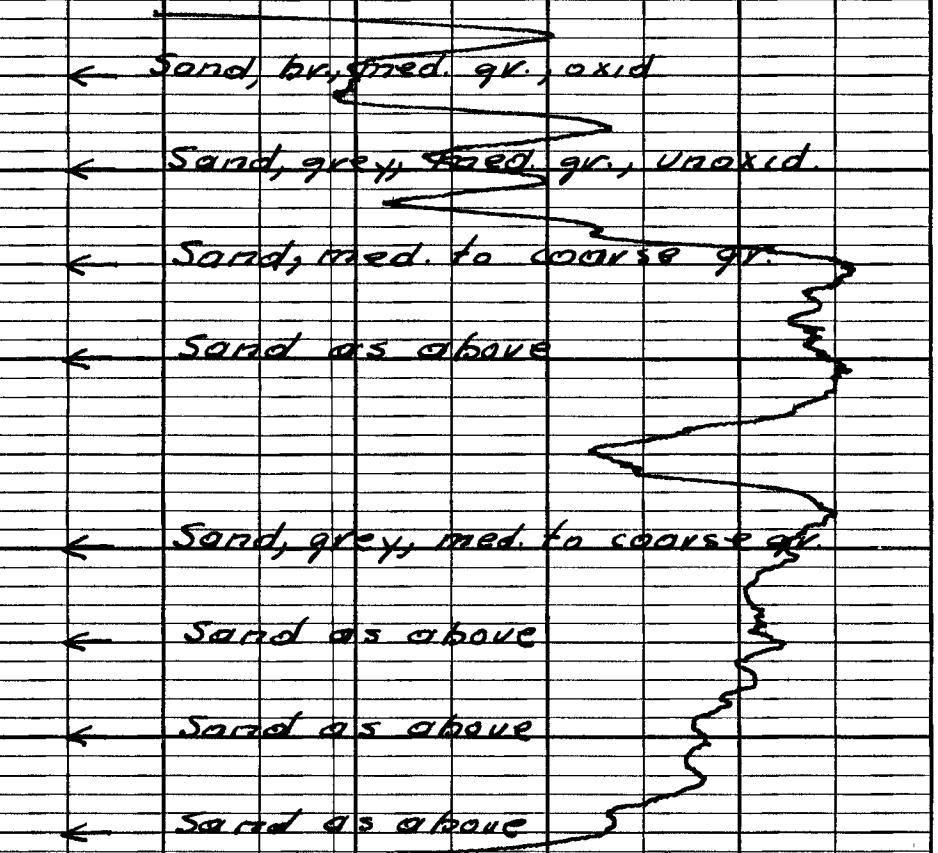 Sand, br., med. gr., oxid
Sand, grey, med. gr., unoxid.
Sand, med. to coarse gr.
Sand as above
Sand, grey, med. to coarse gr.
Sand as above
Sand as above
Sand as above